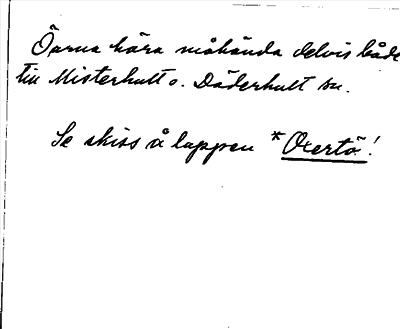 Öarna höra måhända delvis både
till Misterhult o. Döderhult sn.
Se skiss å lappen *Oxertö!